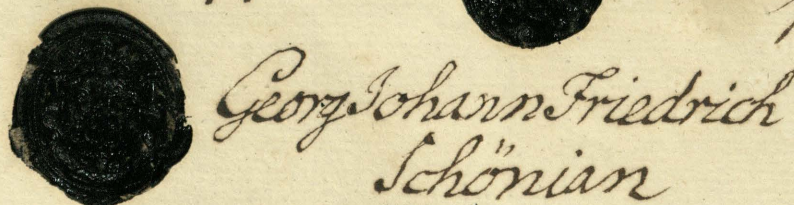 Georg Johann Friedrich
Schönian